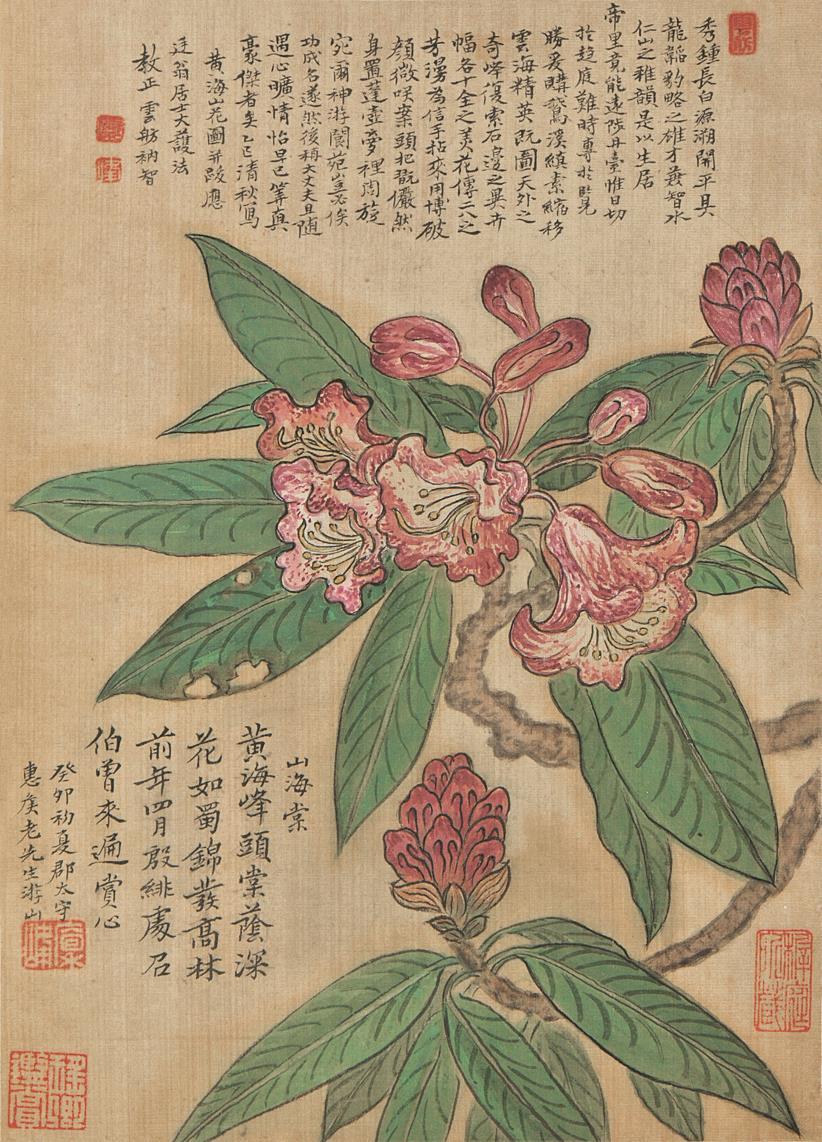 秀鍾長白源溯開平具
龍韜豹略之雄才蓋智水
仁山之雅韻是以生居
帝里竟能遠陟丹臺惟日切
於趨庭難時專於臥見
勝爰購鵞溪縝素縮移
雲海精英既圖天外之
奇峰復索石邊之異卉
幅各十全之美花傳二八之
芳漫為信手拈來用博破
顏微咲案頭把翫儼然
身置蓬壺夢裡周旋
宛爾神游閬苑豈必俟
功成名遂然後稱大丈夫且隨
遇心曠情怡早已等真
豪傑者矣乙巳清秋寫
黃海山花圖并跋應
廷翁居士大護法
教正 雲舫衲智
山海棠
黃海峰頭棠蔭深
花如蜀錦發高林
前年四月殷緋處
伯曾來遍賞心
癸卯初夏郡大守
惠侯老先生游山